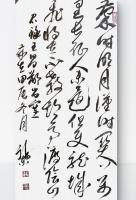 秦时明月汉时关万
里长征人未还但使龙城
飞将在不教胡马度阴山
王昌龄出塞
冬月